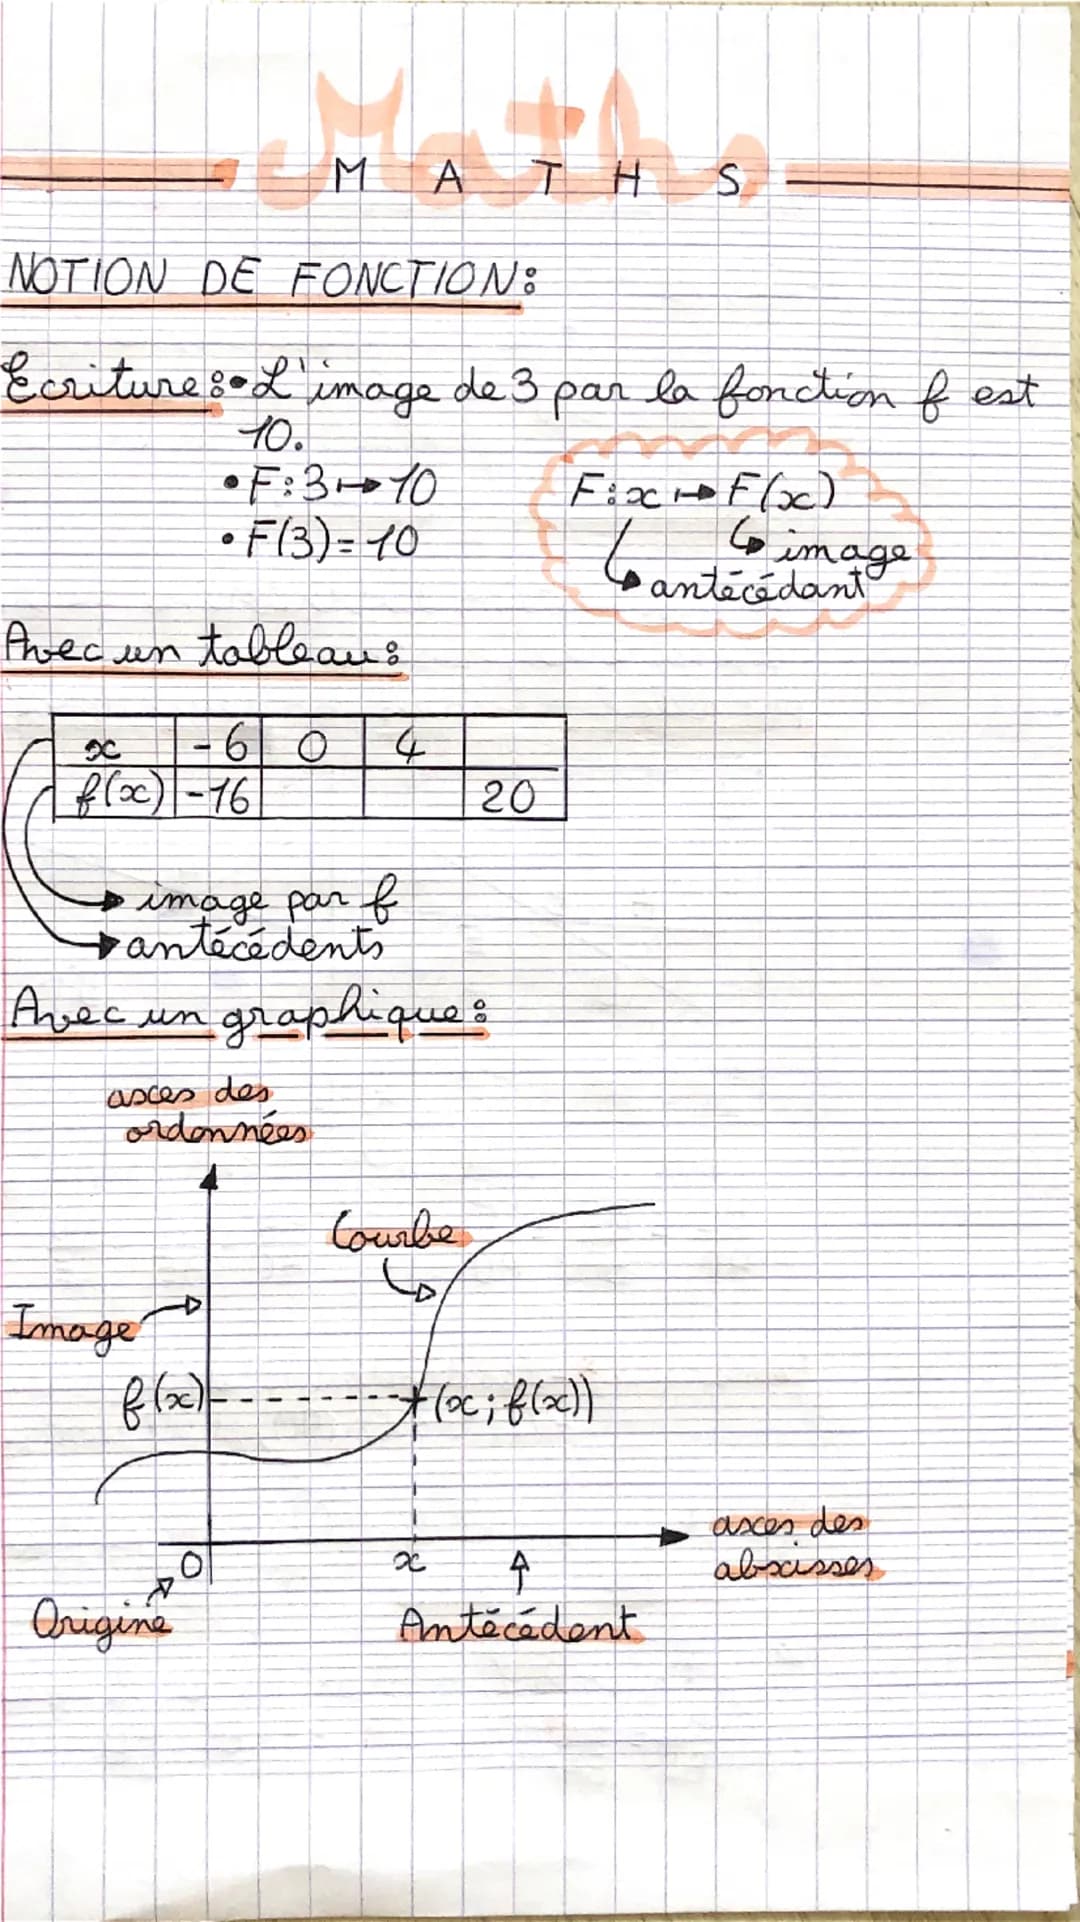 Maths
M A T H S
NOTION DE FONCTION:
Ecriture: • L'image de 3 par la fonction f est
10.
• F: 3 ↦ 10
• F(3) = 10
F: x ↦ F(x)
↳ image
↳ antécédant
Avec un tableau:
x | -6 | 0 | 4 |
f(x) | -16 | | | 20
→ image par f
→ antécédents
Avec un graphique:
axes des
ordonnées
Courbe
Image
f(x)
(x; f(x))
axes des
abscisses
O
x
Origine
Antécédent